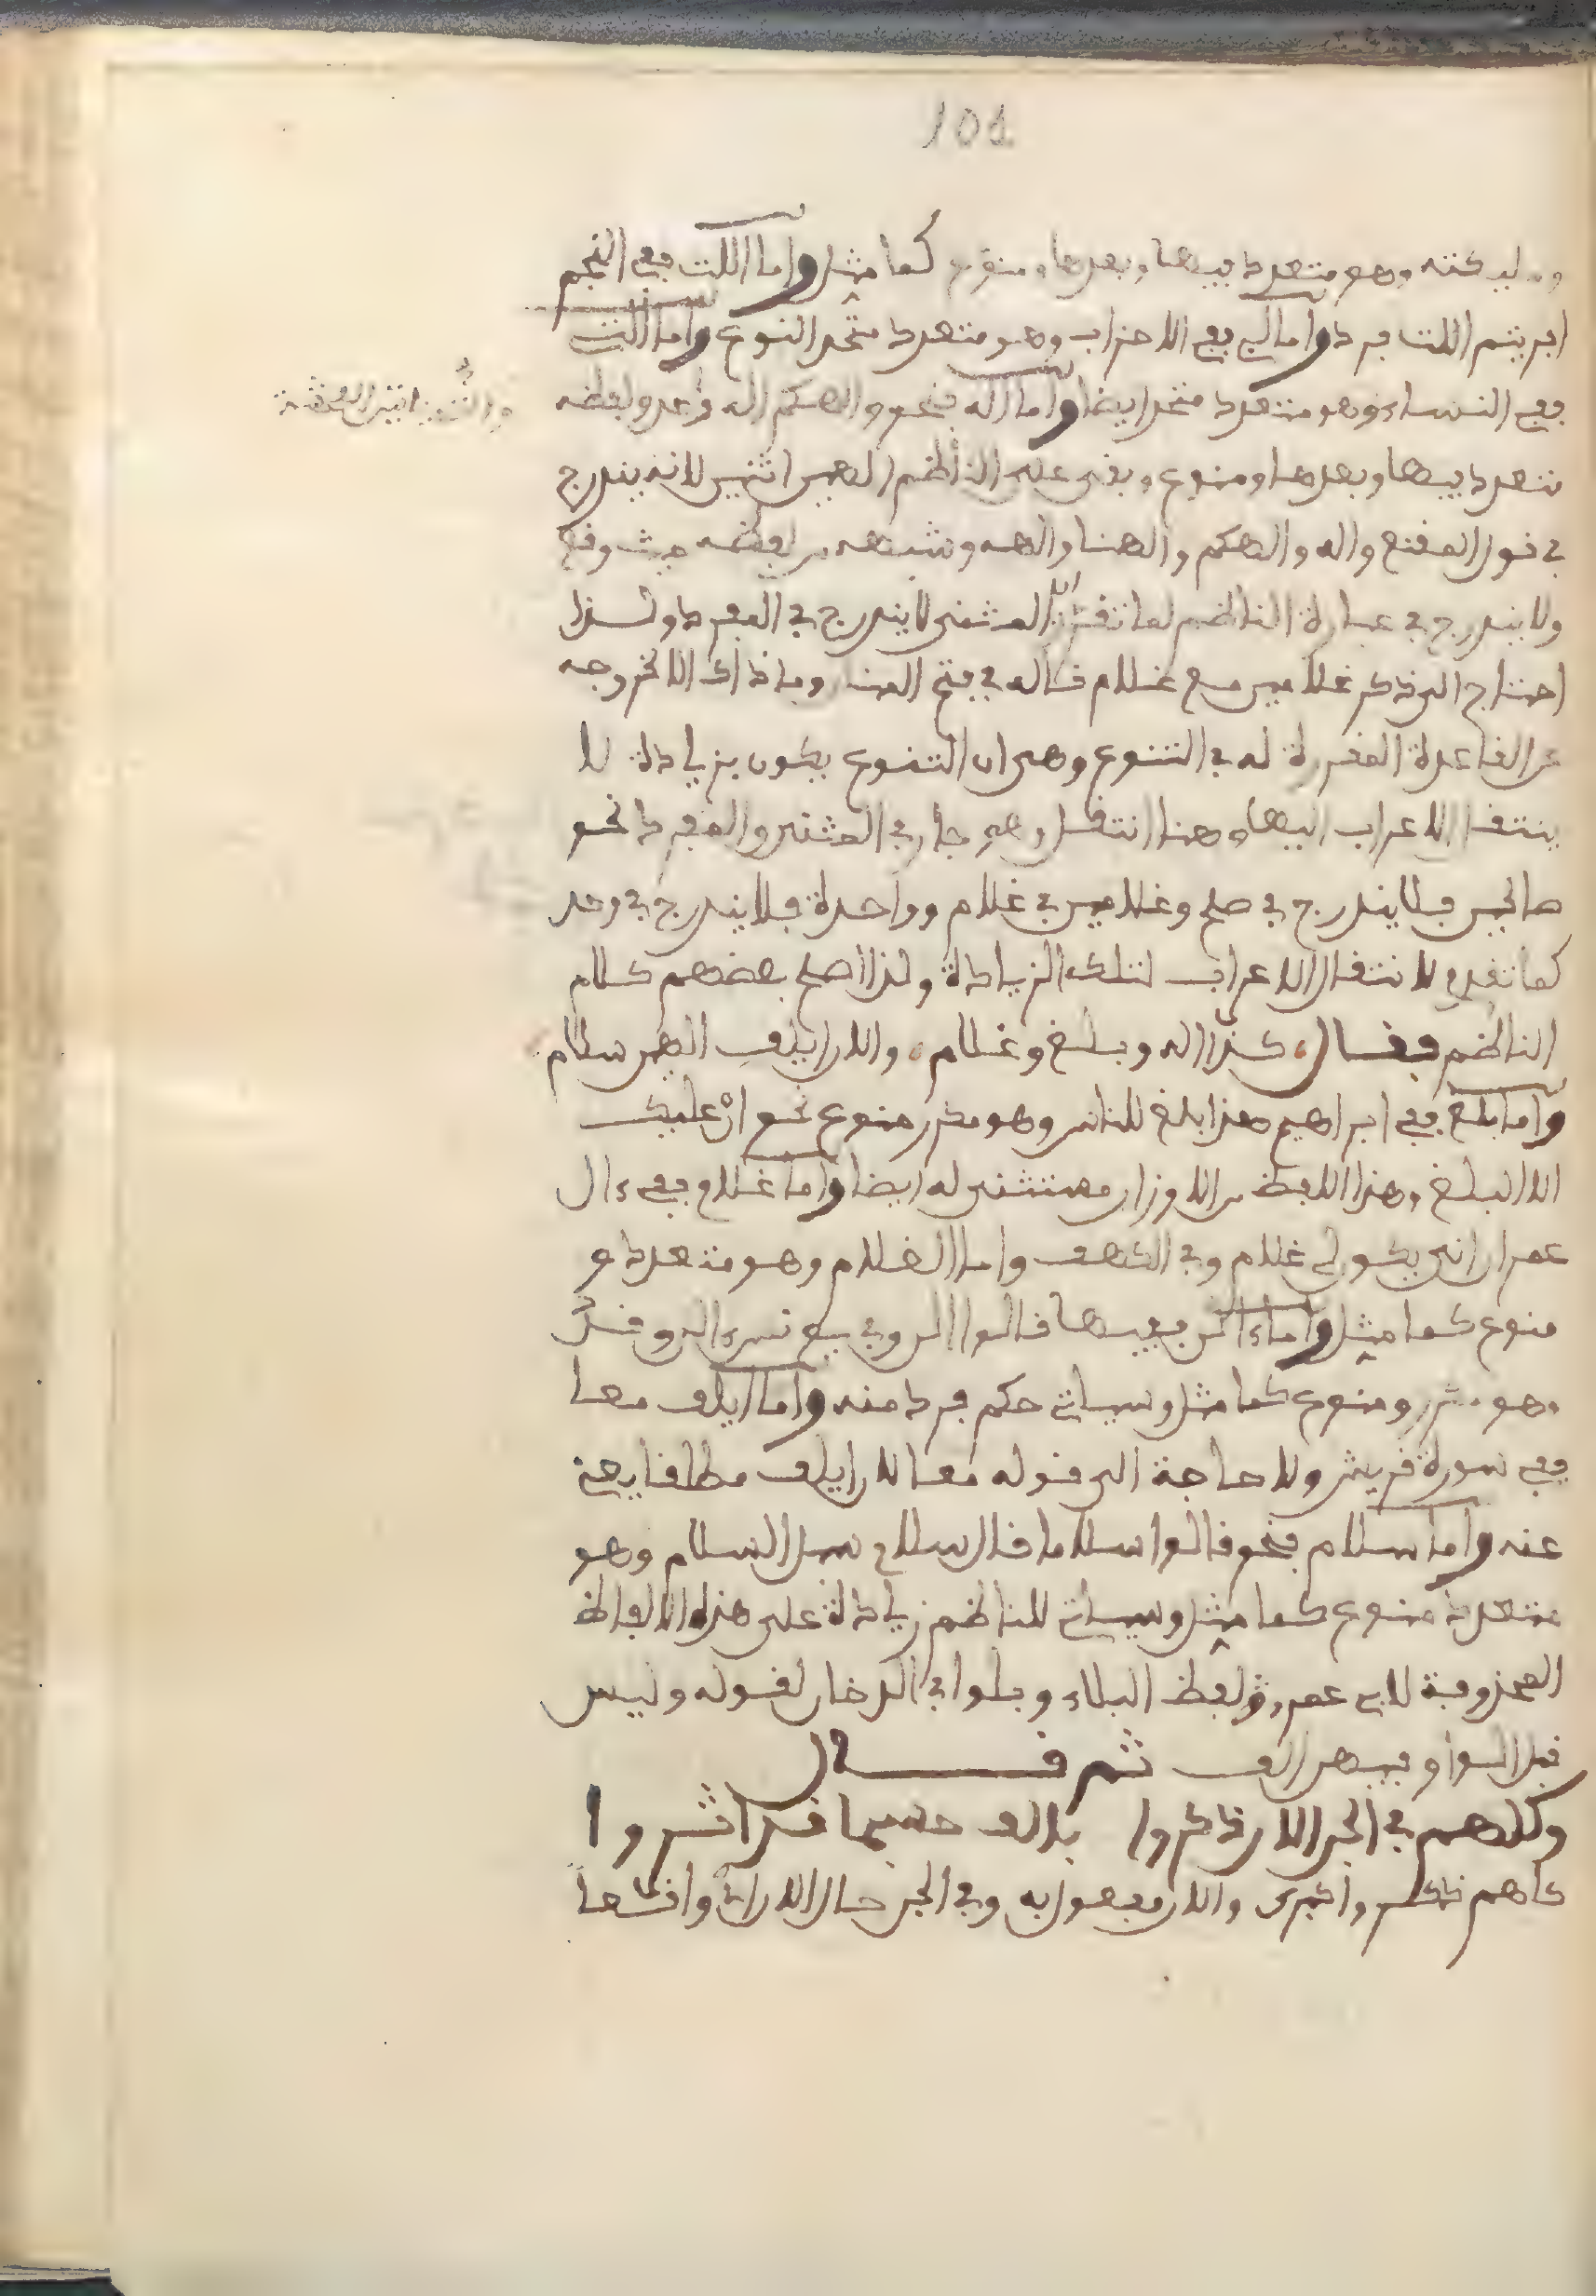 101
وملئكته وهو متعدد فيها وبعدها ومنوع كما مثل واما اللت ففي النجم
افريتم اللت فرد واما الي ففي الاحزاب وهو متعدد متحد النوع واما التي
ففي النساء وهو متعدد متحد ايضا واما اله فنحو والهكم اله وحد ولفظه
متعدد فيها وبعدها ومنوع وبقي على الناظم الهين اثنين لانه يندرج
في قول المقنع واله والهكم والهنا والهه وشبهه من لفظه حيث وقع
ولا يندرج في عبارة الناظم لما تقدم ان المثنى لا يندرج في المفرد ولذا
احتاج الى ذكر غلامين مع غلام قاله في فتح المنان وما ذاك الا لخروجه
عن القاعدة المقررة له في التنوع وهي ان التنوع يكون بزيادة لا
ينتقل الاعراب اليها وهنا انتقل وهو جار في المثنى والمفرد نحو
صالحين فلا يندرج في صلح وغلامين في غلام وواحدة فلا يندرج في وحد
كما تقدم لانتقال الاعراب لتلك الزيادة ولذا اصلح بعضهم كلام
الناظم فقال كذا اله وبلغ وغلام والان ايلف الهين سلام
واما بلغ ففي ابراهيم هذا بلغ للناس وهو مكرر منوع نحو ان عليك
الا البلغ وهذا اللفظ من الاوزان مستثنى له ايضا واما غلام ففي ءال
عمران انى يكون لي غلام وفي الكهف واما الغلام وهو متعدد و
منوع كما مثل واما ءالن ففيها قالوا الن وفي يونس ءالن وقد
وهو مكرر ومنوع كما مثل وسياتي حكم فرد منه واما ايلف معا
ففي سورة قريش ولا حاجة الى قوله معا لان ايلف مطلقا يغني
عنه واما سلام فنحو قالوا سلاما قال سلام سبل السلام وهو
متعدد منوع كما مثل وسياتي للناظم زيادة على هذه الالفاظ
المحذوفة لابي عمرو لفظ البلاء وبلوا في الدخان لقوله وليس
قبل الواو فيهن الف ثم قال
وكلهم في الجن الان ذكروا بالف حسبما قد اثروا
كلهم ذكر واخبرى والان مفعول به وفي الجن حال الان اي واقعا